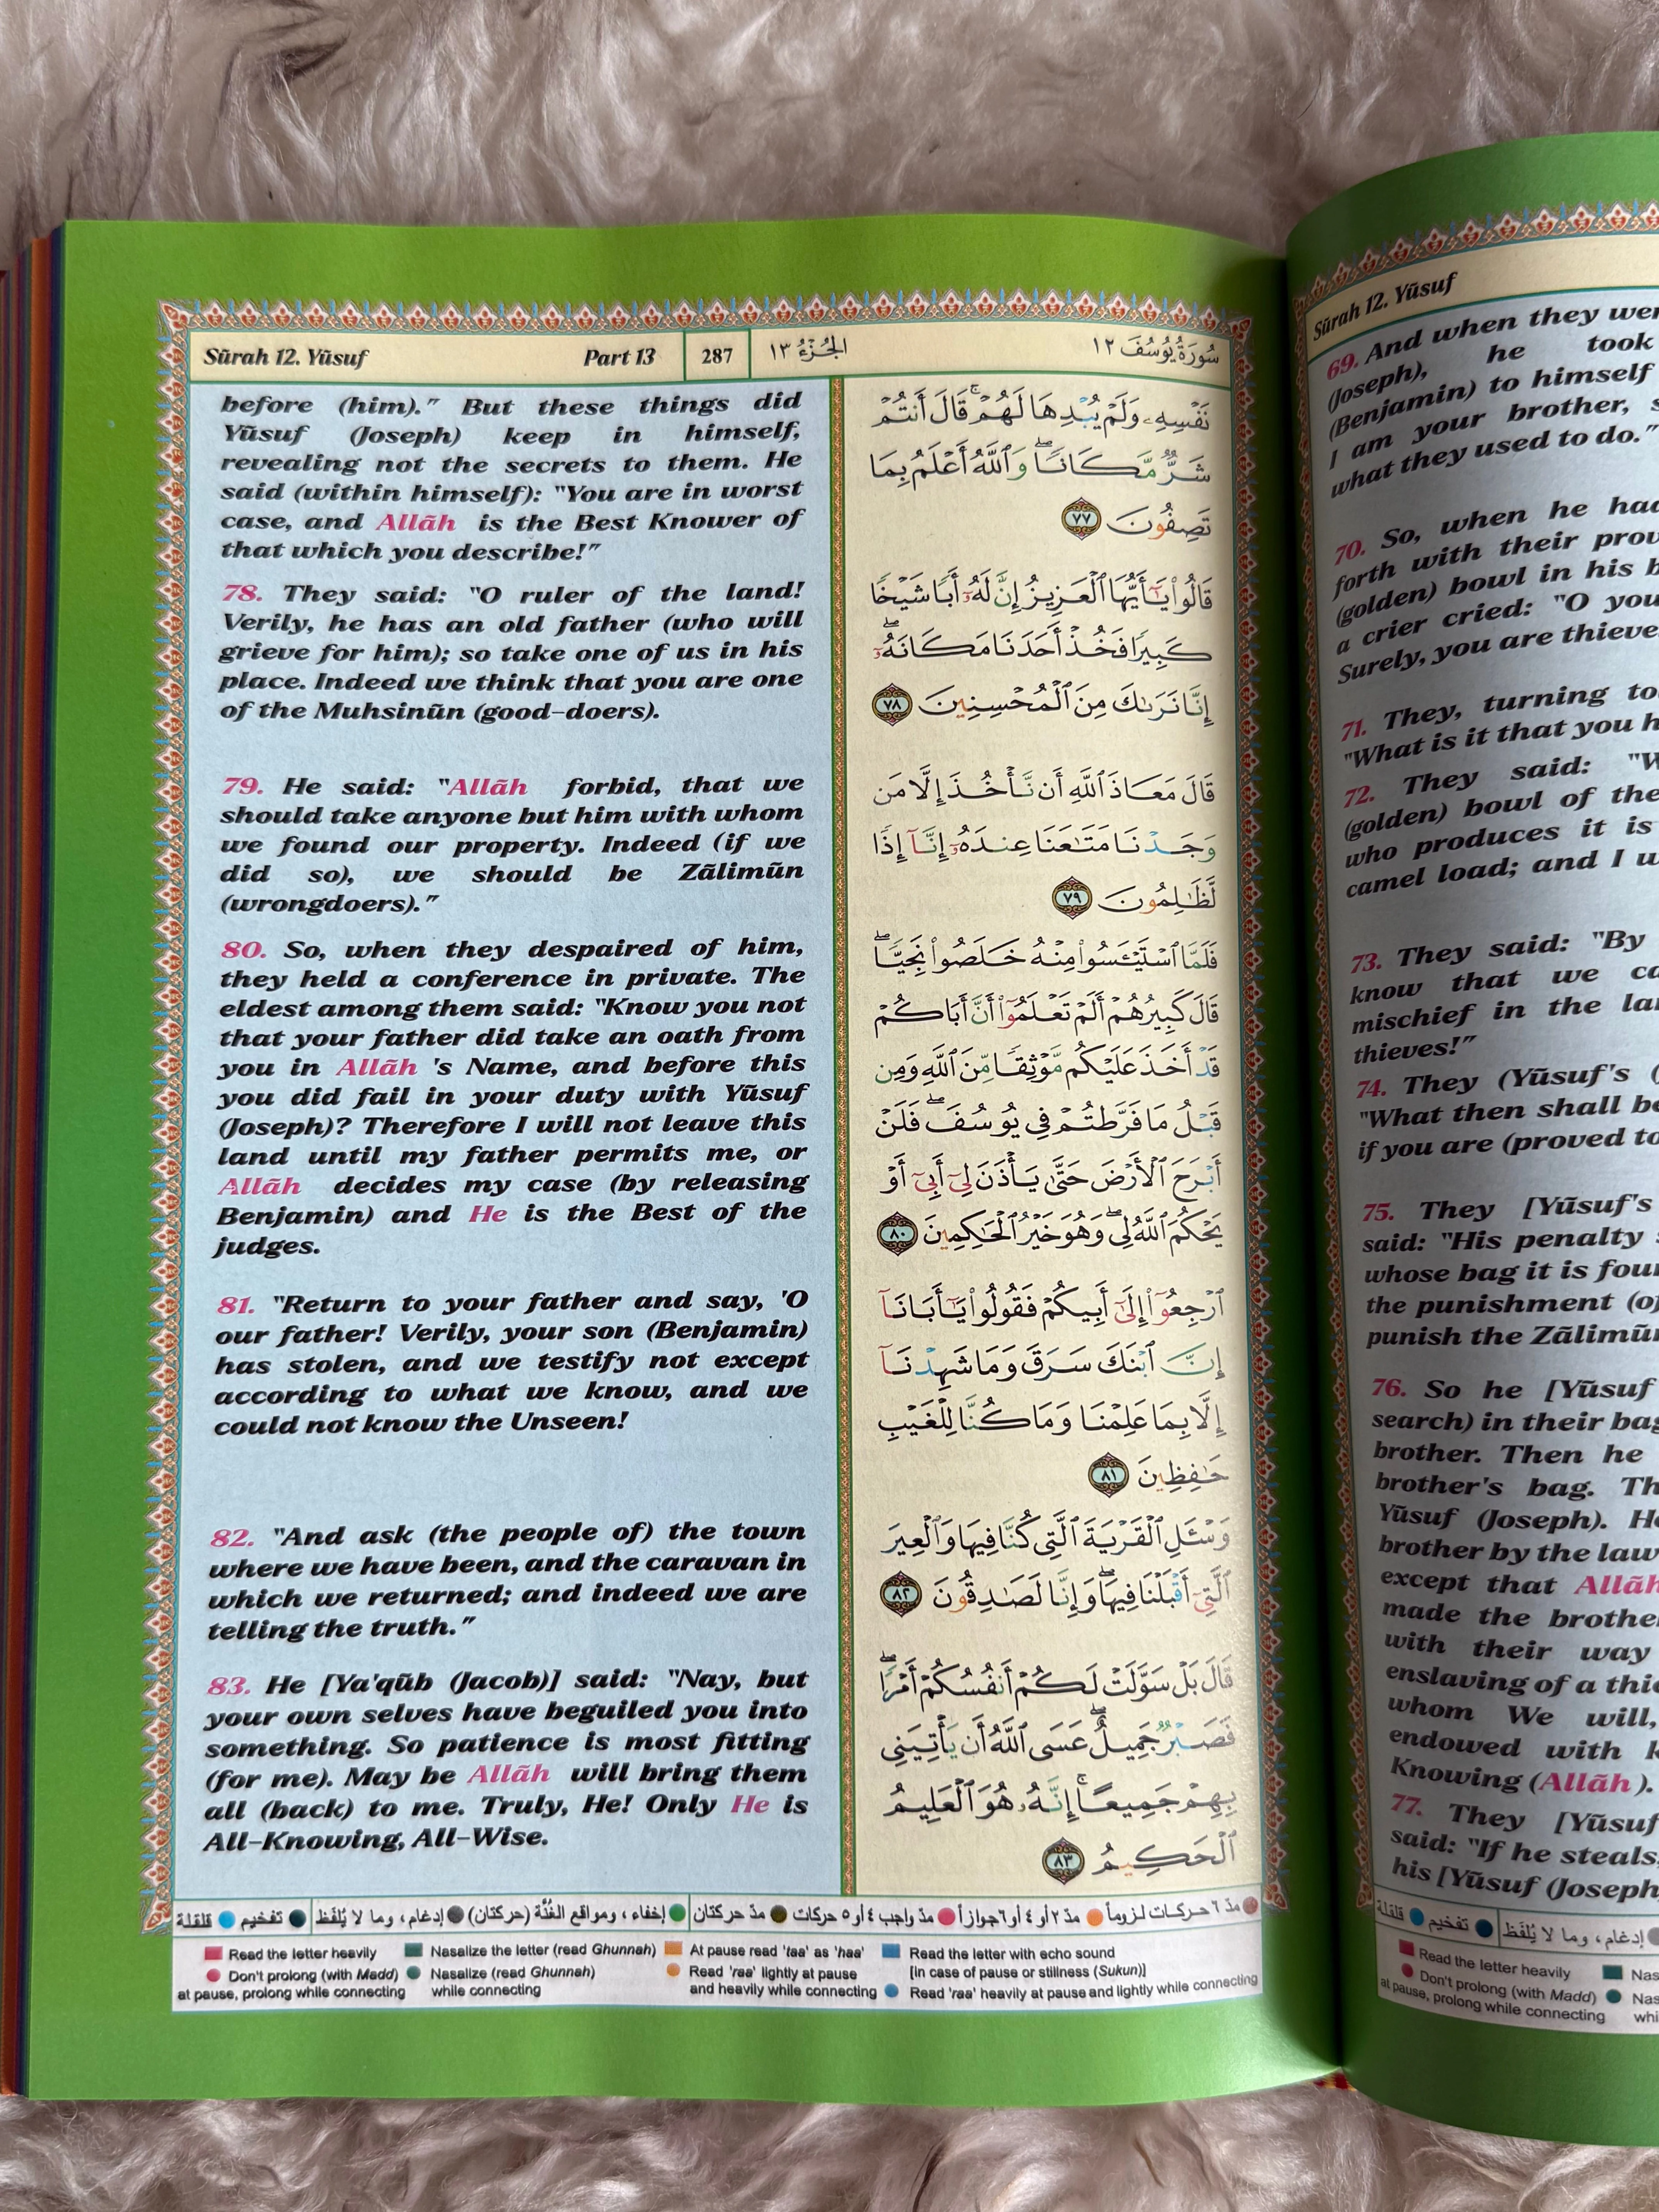 Sūrah 12. Yūsuf Part 13 287 الجُزْءُ ١٣ سُورَةُ يُوسُفَ ١٢
before (him)." But these things did
Yūsuf (Joseph) keep in himself,
revealing not the secrets to them. He
said (within himself): "You are in worst
case, and Allãh is the Best Knower of
that which you describe!"
78. They said: "O ruler of the land!
Verily, he has an old father (who will
grieve for him); so take one of us in his
place. Indeed we think that you are one
of the Muhsinūn (good-doers).
79. He said: "Allãh forbid, that we
should take anyone but him with whom
we found our property. Indeed (if we
did so), we should be Zãlimūn
(wrongdoers)."
80. So, when they despaired of him,
they held a conference in private. The
eldest among them said: "Know you not
that your father did take an oath from
you in Allãh 's Name, and before this
you did fail in your duty with Yūsuf
(Joseph)? Therefore I will not leave this
land until my father permits me, or
Allãh decides my case (by releasing
Benjamin) and He is the Best of the
judges.
81. "Return to your father and say, 'O
our father! Verily, your son (Benjamin)
has stolen, and we testify not except
according to what we know, and we
could not know the Unseen!
82. "And ask (the people of) the town
where we have been, and the caravan in
which we returned; and indeed we are
telling the truth."
83. He [Ya'qūb (Jacob)] said: "Nay, but
your own selves have beguiled you into
something. So patience is most fitting
(for me). May be Allãh will bring them
all (back) to me. Truly, He! Only He is
All-Knowing, All-Wise.
نَفْسِهِۦ وَلَمْ يُبْدِهَا لَهُمْ ۚ قَالَ أَنتُمْ
شَرٌّ مَّكَانًا ۖ وَٱللَّهُ أَعْلَمُ بِمَا
تَصِفُونَ ٧٧
قَالُوا۟ يَـٰٓأَيُّهَا ٱلْعَزِيزُ إِنَّ لَهُۥٓ أَبًا شَيْخًا
كَبِيرًا فَخُذْ أَحَدَنَا مَكَانَهُۥٓ ۖ
إِنَّا نَرَىٰكَ مِنَ ٱلْمُحْسِنِينَ ٧٨
قَالَ مَعَاذَ ٱللَّهِ أَن نَّأْخُذَ إِلَّا مَن
وَجَدْنَا مَتَـٰعَنَا عِندَهُۥٓ إِنَّآ إِذًا
لَّظَـٰلِمُونَ ٧٩
فَلَمَّا ٱسْتَيْـَٔسُوا۟ مِنْهُ خَلَصُوا۟ نَجِيًّا ۖ
قَالَ كَبِيرُهُمْ أَلَمْ تَعْلَمُوٓا۟ أَنَّ أَبَاكُمْ
قَدْ أَخَذَ عَلَيْكُم مَّوْثِقًا مِّنَ ٱللَّهِ وَمِن
قَبْلُ مَا فَرَّطتُمْ فِى يُوسُفَ ۖ فَلَنْ
أَبْرَحَ ٱلْأَرْضَ حَتَّىٰ يَأْذَنَ لِىٓ أَبِىٓ أَوْ
يَحْكُمَ ٱللَّهُ لِى ۖ وَهُوَ خَيْرُ ٱلْحَـٰكِمِينَ ٨٠
ٱرْجِعُوٓا۟ إِلَىٰٓ أَبِيكُمْ فَقُولُوا۟ يَـٰٓأَبَانَآ
إِنَّ ٱبْنَكَ سَرَقَ وَمَا شَهِدْنَآ
إِلَّا بِمَا عَلِمْنَا وَمَا كُنَّا لِلْغَيْبِ
حَـٰفِظِينَ ٨١
وَسْـَٔلِ ٱلْقَرْيَةَ ٱلَّتِى كُنَّا فِيهَا وَٱلْعِيرَ
ٱلَّتِىٓ أَقْبَلْنَا فِيهَا ۖ وَإِنَّا لَصَـٰدِقُونَ ٨٢
قَالَ بَلْ سَوَّلَتْ لَكُمْ أَنفُسُكُمْ أَمْرًا ۖ
فَصَبْرٌ جَمِيلٌ ۖ عَسَى ٱللَّهُ أَن يَأْتِيَنِى
بِهِمْ جَمِيعًا ۚ إِنَّهُۥ هُوَ ٱلْعَلِيمُ
ٱلْحَكِيمُ ٨٣
مدّ ٦ حركات لزوماً مدّ ٢ أو ٤ أو ٦ جوازاً مدّ واجب ٤ أو ٥ حركات مدّ حركتان إخفاء ، ومواقع الغُنَّة (حركتان) إدغام، وما لا يُلفَظ تفخيم قلقلة
Read the letter heavily
Don't prolong (with Madd)
at pause, prolong while connecting
Nasalize the letter (read Ghunnah)
Nasalize (read Ghunnah)
while connecting
At pause read 'taa' as 'haa'
Read 'raa' lightly at pause
and heavily while connecting
Read the letter with echo sound
[In case of pause or stillness (Sukun)]
Read 'raa' heavily at pause and lightly while connecting
Sūrah 12. Yūsuf
69. And when they
(Joseph), he took
(Benjamin) to himself
I am your brother,
what they used to do."
70. So, when he had
forth with their
(golden) bowl in his
a crier cried: "O you
Surely, you are
71. They, turning
"What is it that you
72. They said:
(golden) bowl of the
who produces it is
camel load; and I
73. They said: "By
know that we
mischief in the
thieves!"
74. They (Yūsuf's
"What then shall
if you are (proved
75. They [Yūsuf's
said: "His penalty
whose bag it is
the punishment
punish the
76. So he [Yūsuf
search) in their
brother. Then he
brother's bag.
Yūsuf (Joseph).
brother by the law
except that Allãh
made the
with their way
enslaving of a
whom We will,
endowed with
Knowing (Allãh ).
77. They [Yūsuf
said: "If he steals,
his [Yūsuf (Joseph
إدغام، وما لا يُلفَظ تفخيم قلقلة
Read the letter heavily
Don't prolong (with Madd)
at pause, prolong while connecting